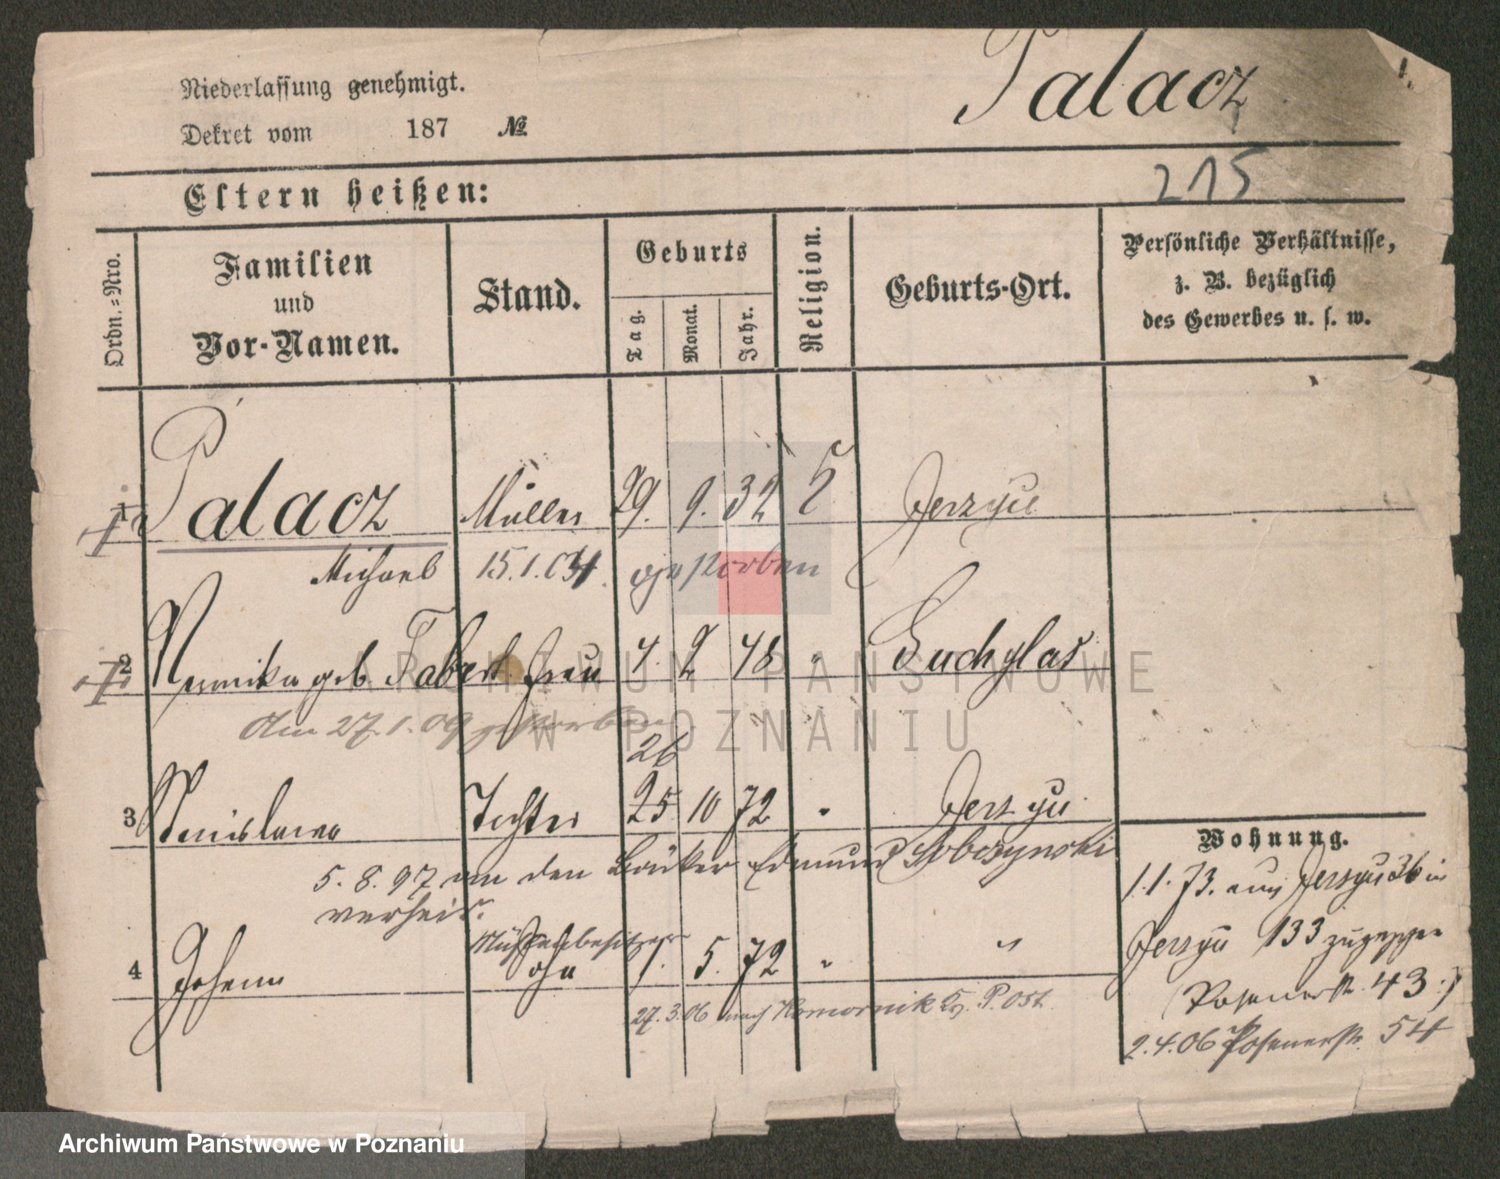 Niederlassung genehmigt.
Palacz
Dekret vom 187 №
215
Eltern heißen:
Ordn.-Nro.
Familien und Vor-Namen.
Stand.
Geburts
Tag. Monat. Jahr.
Religion.
Geburts-Ort.
Persönliche Verhältnisse,
z. B. bezüglich
des Gewerbes u. s. w.
1 Palacz Müller 29. 9. 32 Jerzyce
Michael 15.1.04 gestorben
2 geb. Fabest Frau 4. 2 48 " Suchylas
Am 27.1.09 gestorben
26
3 Stanislawa Tochter 25 10 72 " Jerzyce
5. 8. 97 an den Bäcker Edmund Sobczynski
verheir.
4 Johann Mühlenbesitzer
Sohn 1. 5. 72 " "
27.3.06 nach Komornik Kr. P. Ost.
Wohnung.
1.1.73. aus Jerzyce 36 in
Jerzyce 133 zugezogen
(Posenerstr. 43.)
2.4.06 Posenerstr. 54
ARCHIWUM PAŃSTWOWE
W POZNANIU
Archiwum Państwowe w Poznaniu